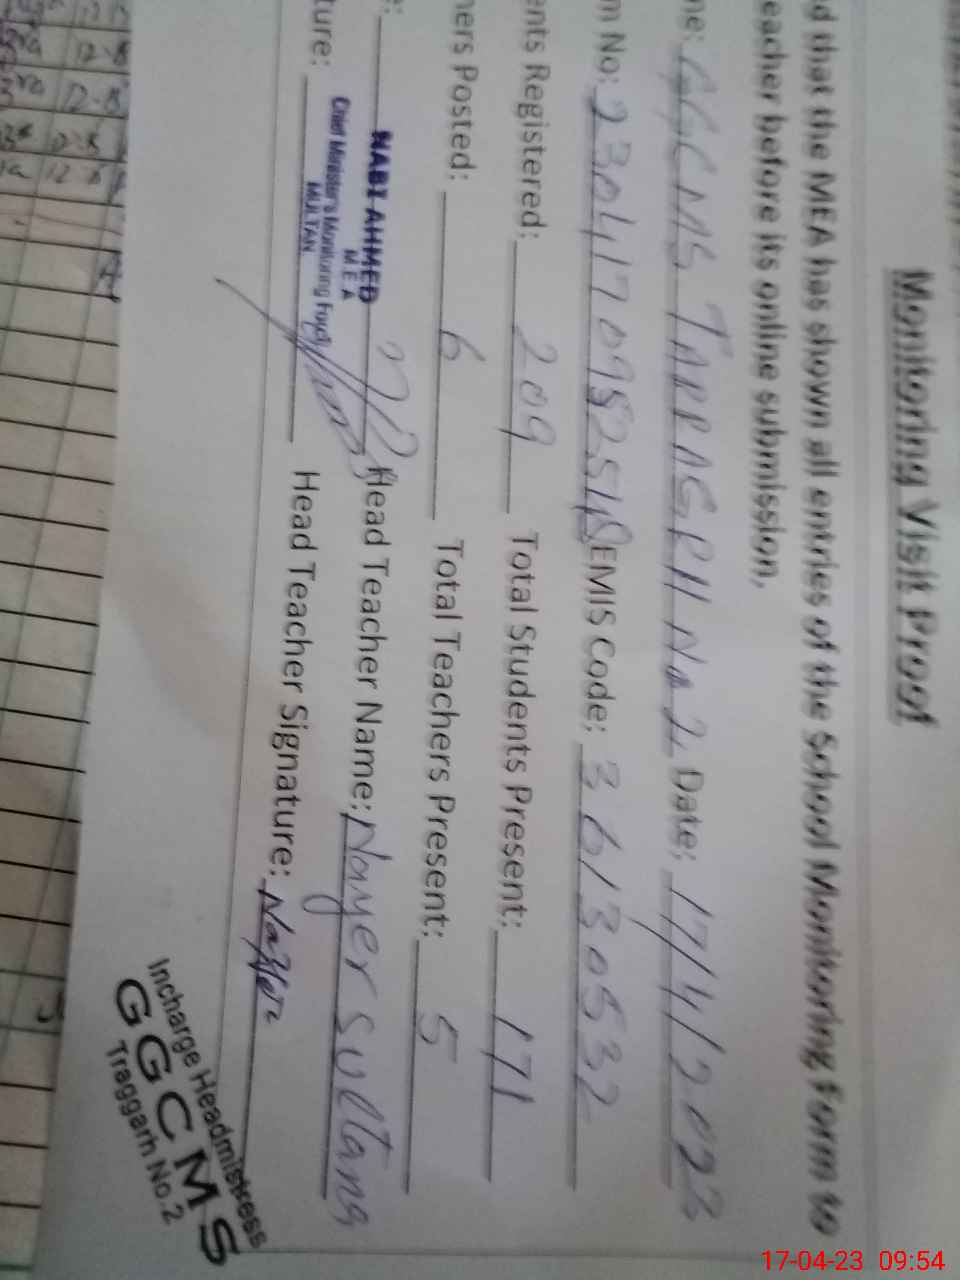 Monitoring Visit Proof
d that the MEA has shown all entries of the School Monitoring Form to
eacher before its online submission,
me: GGCMS TARRAGRH No 2 Date: 17/4/2023
m No: EMIS Code: 36130532
ents Registered: 209 Total Students Present: 171
hers Posted: 6 Total Teachers Present: 5
e: Head Teacher Name: Nayer Sultana
NABI AHMED
M E A
Chief Minister's Monitoring Force
MULTAN
ture: Head Teacher Signature:
Incharge Headmistress
GGCMS
Traggarh No.2
17-04-23 09:54